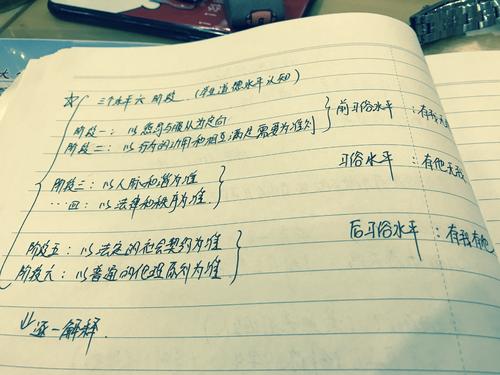 ☆ 三个水平六阶段 (毕业道德水平认知)
阶段一: 以惩罚与服从为定向
阶段二: 以行为的功用和相互满足需要为准则
前习俗水平 : 有我无
阶段三: 以人际和谐为准
…四: 以法律和秩序为准
习俗水平 : 有他无我
阶段五: 以法定的社会契约为准
阶段六: 以普遍的伦理原则为准
后习俗水平 : 有我有他
逐一解释.